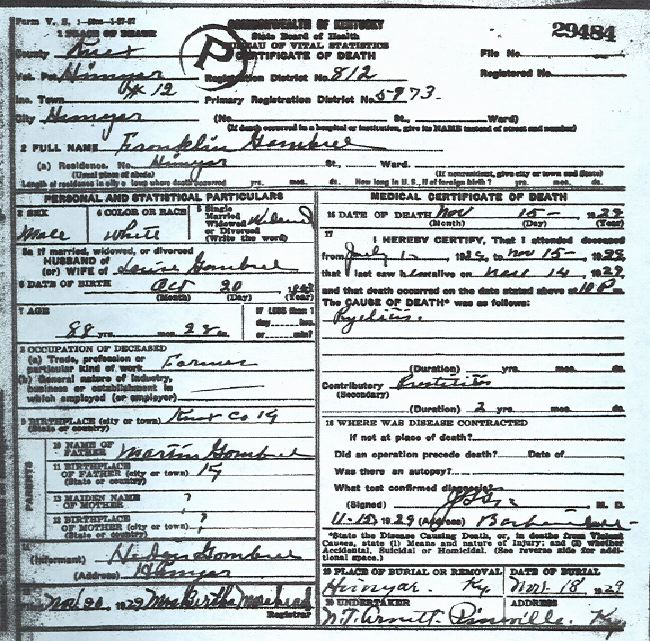 COMMONWEALTH OF KENTUCKY
State Board of Health
BUREAU OF VITAL STATISTICS
CERTIFICATE OF DEATH
29484
Form V. S.
1 PLACE OF DEATH
County Knox
Vot. Pct. Himyar # 12
Inc. Town
City Himyar
P
Registration District No. 812
Primary Registration District No. 5973
File No.
Registered No.
(No. St., Ward)
(If death occurred in a hospital or institution, give its NAME instead of street and number)
2 FULL NAME Franklin Gambrel
(a) Residence. No. Himyar St., Ward.
(Usual place of abode) (If nonresident, give city or town and State)
Length of residence in city or town where death occurred yrs. mos. ds. How long in U. S., if of foreign birth? yrs. mos. ds.
PERSONAL AND STATISTICAL PARTICULARS
3 SEX
Male
4 COLOR OR RACE
White
5 Single
Married
Widowed
or Divorced
(Write the word)
5a If married, widowed, or divorced
HUSBAND of
(or) WIFE of Gambrel
6 DATE OF BIRTH Oct 20
(Month) (Day) (Year)
7 AGE
88 yrs. mos. 28 ds.
IF LESS than 1
day, hrs.
or min?
8 OCCUPATION OF DECEASED
(a) Trade, profession or
particular kind of work Farmer
(b) General nature of industry,
business or establishment in
which employed (or employer)
9 BIRTHPLACE (city or town) Knox Co Ky
(State or country)
PARENTS
10 NAME OF
FATHER Martin Gambrel
11 BIRTHPLACE
OF FATHER (city or town) Ky
(State or country)
12 MAIDEN NAME
OF MOTHER ?
13 BIRTHPLACE
OF MOTHER (city or town) ?
(State or country)
14
(Informant) Gambrel
(Address) Himyar
15
Nov 20 1929 Mrs Bertha Morehead
Registrar
MEDICAL CERTIFICATE OF DEATH
16 DATE OF DEATH Nov 15 1929
(Month) (Day) (Year)
17
I HEREBY CERTIFY, That I attended deceased
from July 1 1929 to Nov 15 1929
that I last saw h alive on Nov 14 1929
and that death occurred on the date stated above at 10 P m.
The CAUSE OF DEATH* was as follows:
Pyelitis.
(Duration) yrs. mos. ds.
Contributory Prostitis
(Secondary)
(Duration) 2 yrs. mos. ds.
18 WHERE WAS DISEASE CONTRACTED
If not at place of death?
Did an operation precede death? Date of
Was there an autopsy?
What test confirmed diagnosis?
(Signed) M. D.
11-15 1929 (Address)
*State the Disease Causing Death, or, in deaths from Violent
Causes, state (1) Means and nature of Injury; and (2) whether
Accidental, Suicidal or Homicidal. (See reverse side for addi-
tional space.)
19 PLACE OF BURIAL OR REMOVAL
Himyar. Ky.
DATE OF BURIAL
Nov. 18 1929
20 UNDERTAKER
N.T. Arnett
ADDRESS
Pineville, Ky